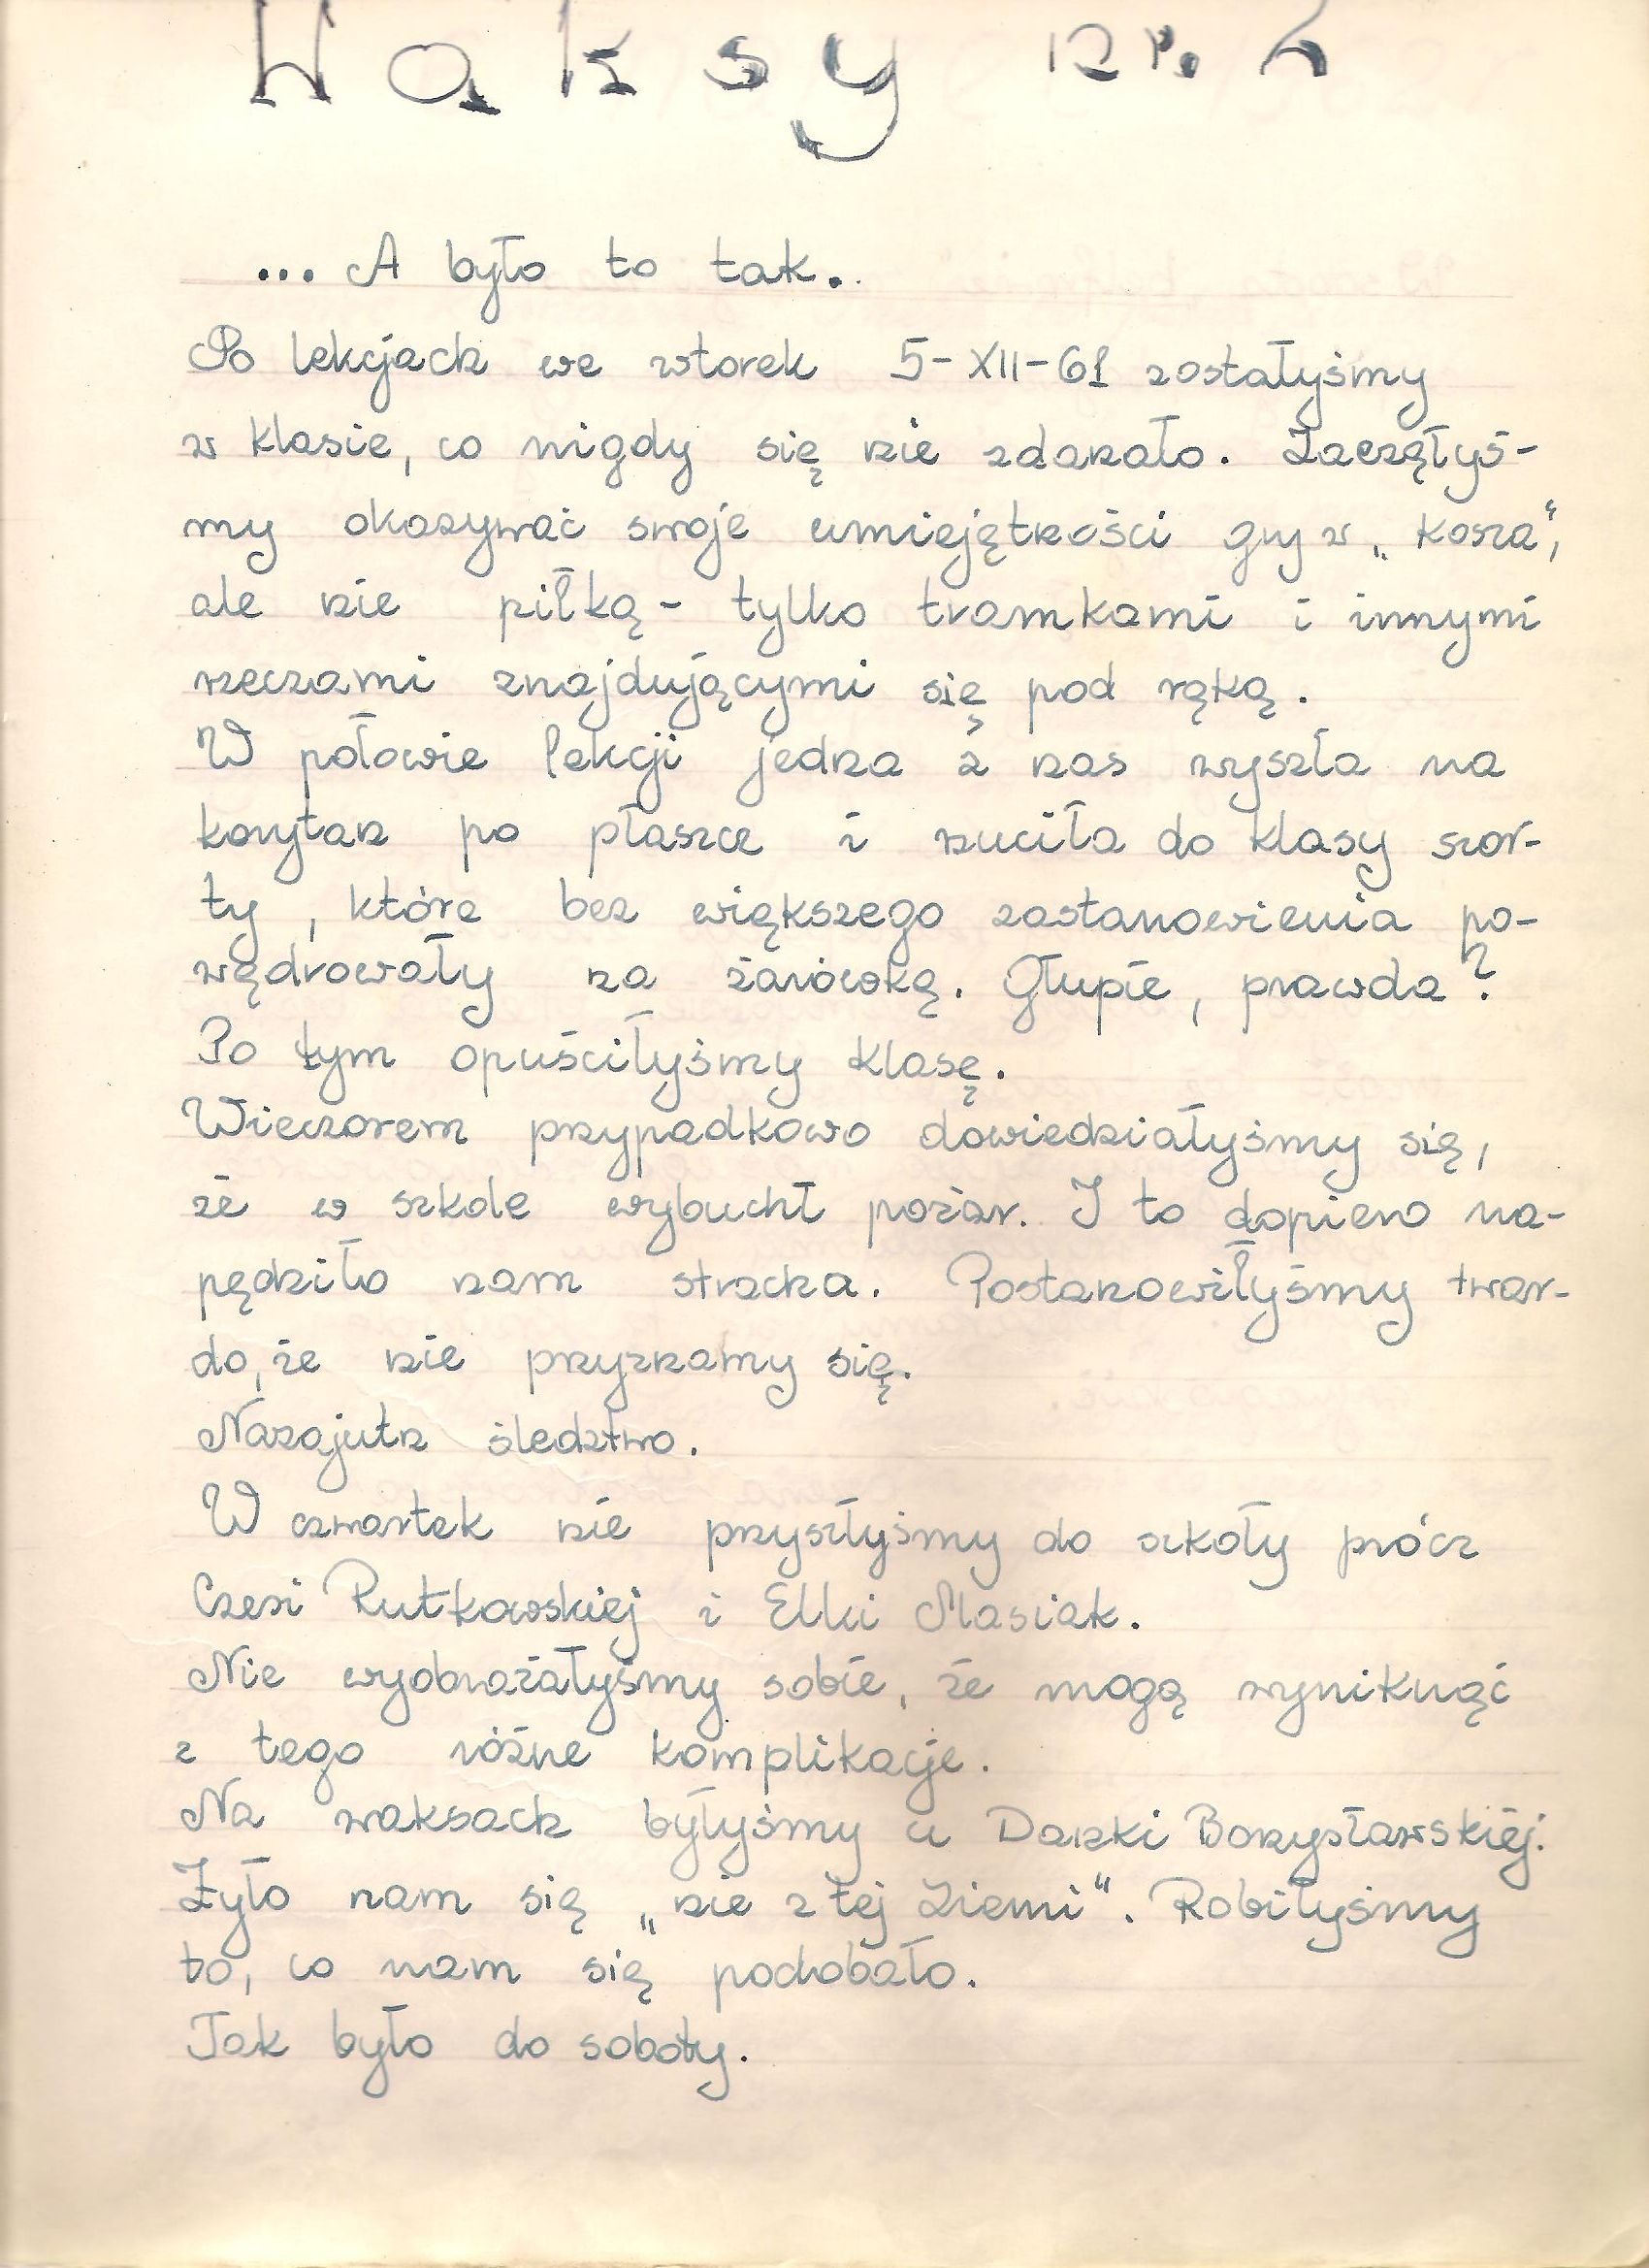 Waksy nr. 2
... A było to tak..
Po lekcjach we wtorek 5-XII-61 zostałyśmy
w klasie, co nigdy się nie zdarzało. Zaczęłyś-
my okazywać swoje umiejętności gry w „kosza",
ale nie piłką - tylko trampkami i innymi
rzeczami znajdującymi się pod ręką.
W połowie lekcji jedna z nas wyszła na
korytarz po płaszcze i rzuciła do klasy szor-
ty, które bez większego zastanowienia po-
wędrowały za żarówkę. Głupie, prawda?
Po tym opuściłyśmy klasę.
Wieczorem przypadkowo dowiedziałyśmy się,
że w szkole wybuchł pożar. I to dopiero na-
pędziło nam stracha. Postanowiłyśmy twar-
do, że nie przyznamy się.
Nazajutrz śledztwo.
W czwartek nie przyszłyśmy do szkoły prócz
Czesi Rutkowskiej i Elki Masiak.
Nie wyobrażałyśmy sobie, że mogą wyniknąć
z tego różne komplikacje.
Na waksach byłyśmy u Danki Borysławskiej.
Żyło nam się „nie z tej Ziemi". Robiłyśmy
to, co nam się podobało.
Tak było do soboty.